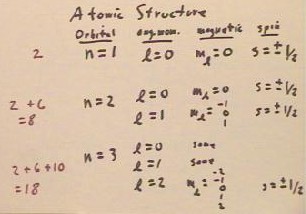 Atomic Structure
Orbital ang.mom. magnetic spin
2 n=1 l=0 m_l=0 s=±1/2
n=2 l=0 m_l=0 s=±1/2
2+6 =8 l=1 m_l=-1 0 1 s=±1/2
n=3 l=0 same
l=1 same
2+6+10 =18 l=2 m_l=-2 -1 0 1 2 s=±1/2